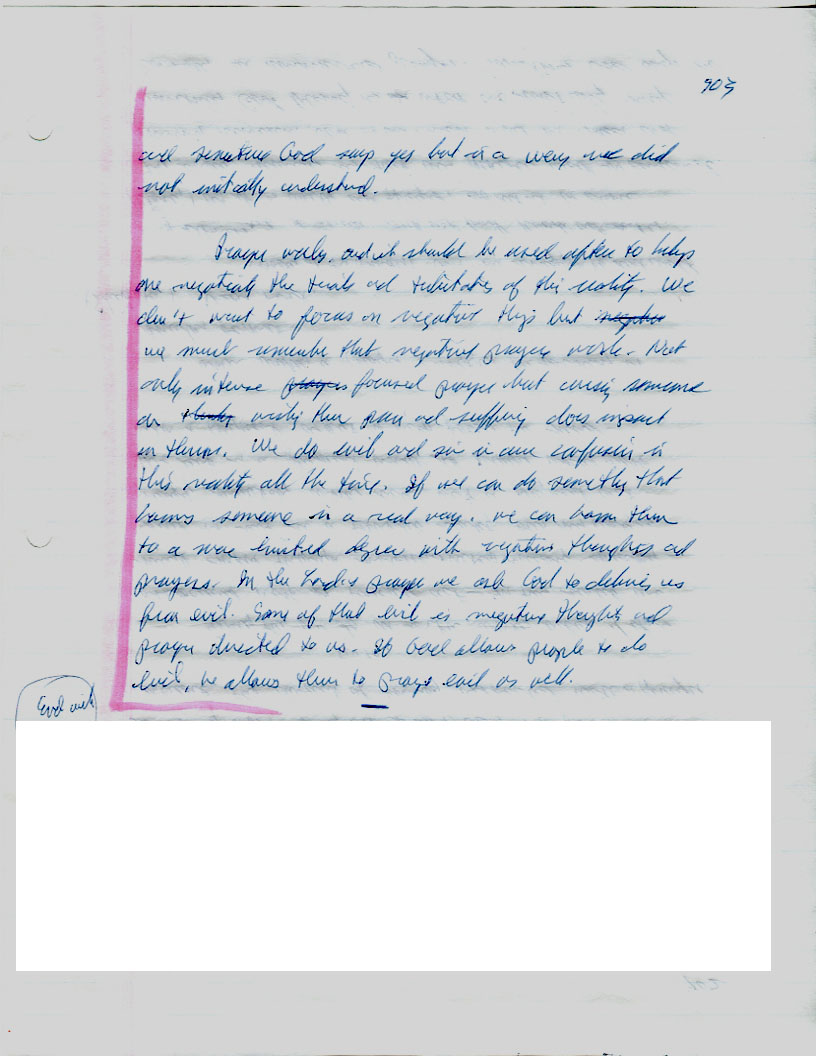 903
and sometimes God says yes but in a way we did
not initially understand.
Prayer works, and it should be used often to help
one negotiate the trials and tribulations of this reality. We
don't want to focus on negative things but
we must remember that negative prayers work. Not
only intense prayers focused prayer but cursing someone
or wishing them pain and suffering does impact
on them. We do evil and sin in our confusion in
this reality all the time. If we can do something that
harms someone in a real way, we can harm them
to a more limited degree with negative thoughts and
prayers. In the Lord's prayer we ask God to deliver us
from evil. Some of that evil is negative thoughts and
prayer directed to us. If God allows people to do
evil, he allows them to pray evil as well.
End with